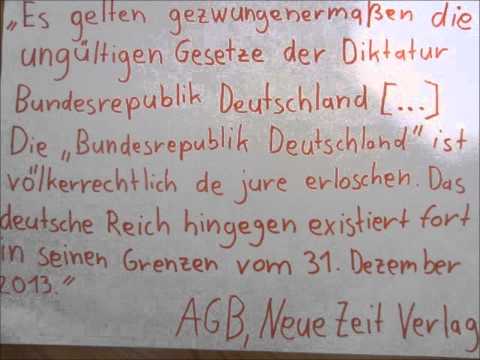 „Es gelten gezwungenermaßen die
ungültigen Gesetze der Diktatur
Bundesrepublik Deutschland [...]
Die „Bundesrepublik Deutschland" ist
völkerrechtlich de jure erloschen. Das
deutsche Reich hingegen existiert fort
in seinen Grenzen vom 31. Dezember
2013."
AGB, Neue Zeit Verlag